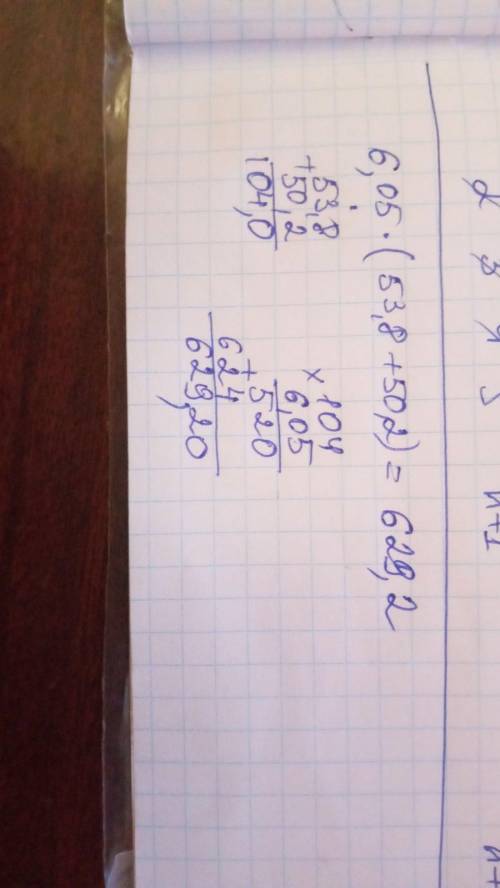 6,05 · (53,8 + 50,2) = 629,2
+ 53,8
50,2
104,0
× 104
6,05
520
+
624
629,20
n+1